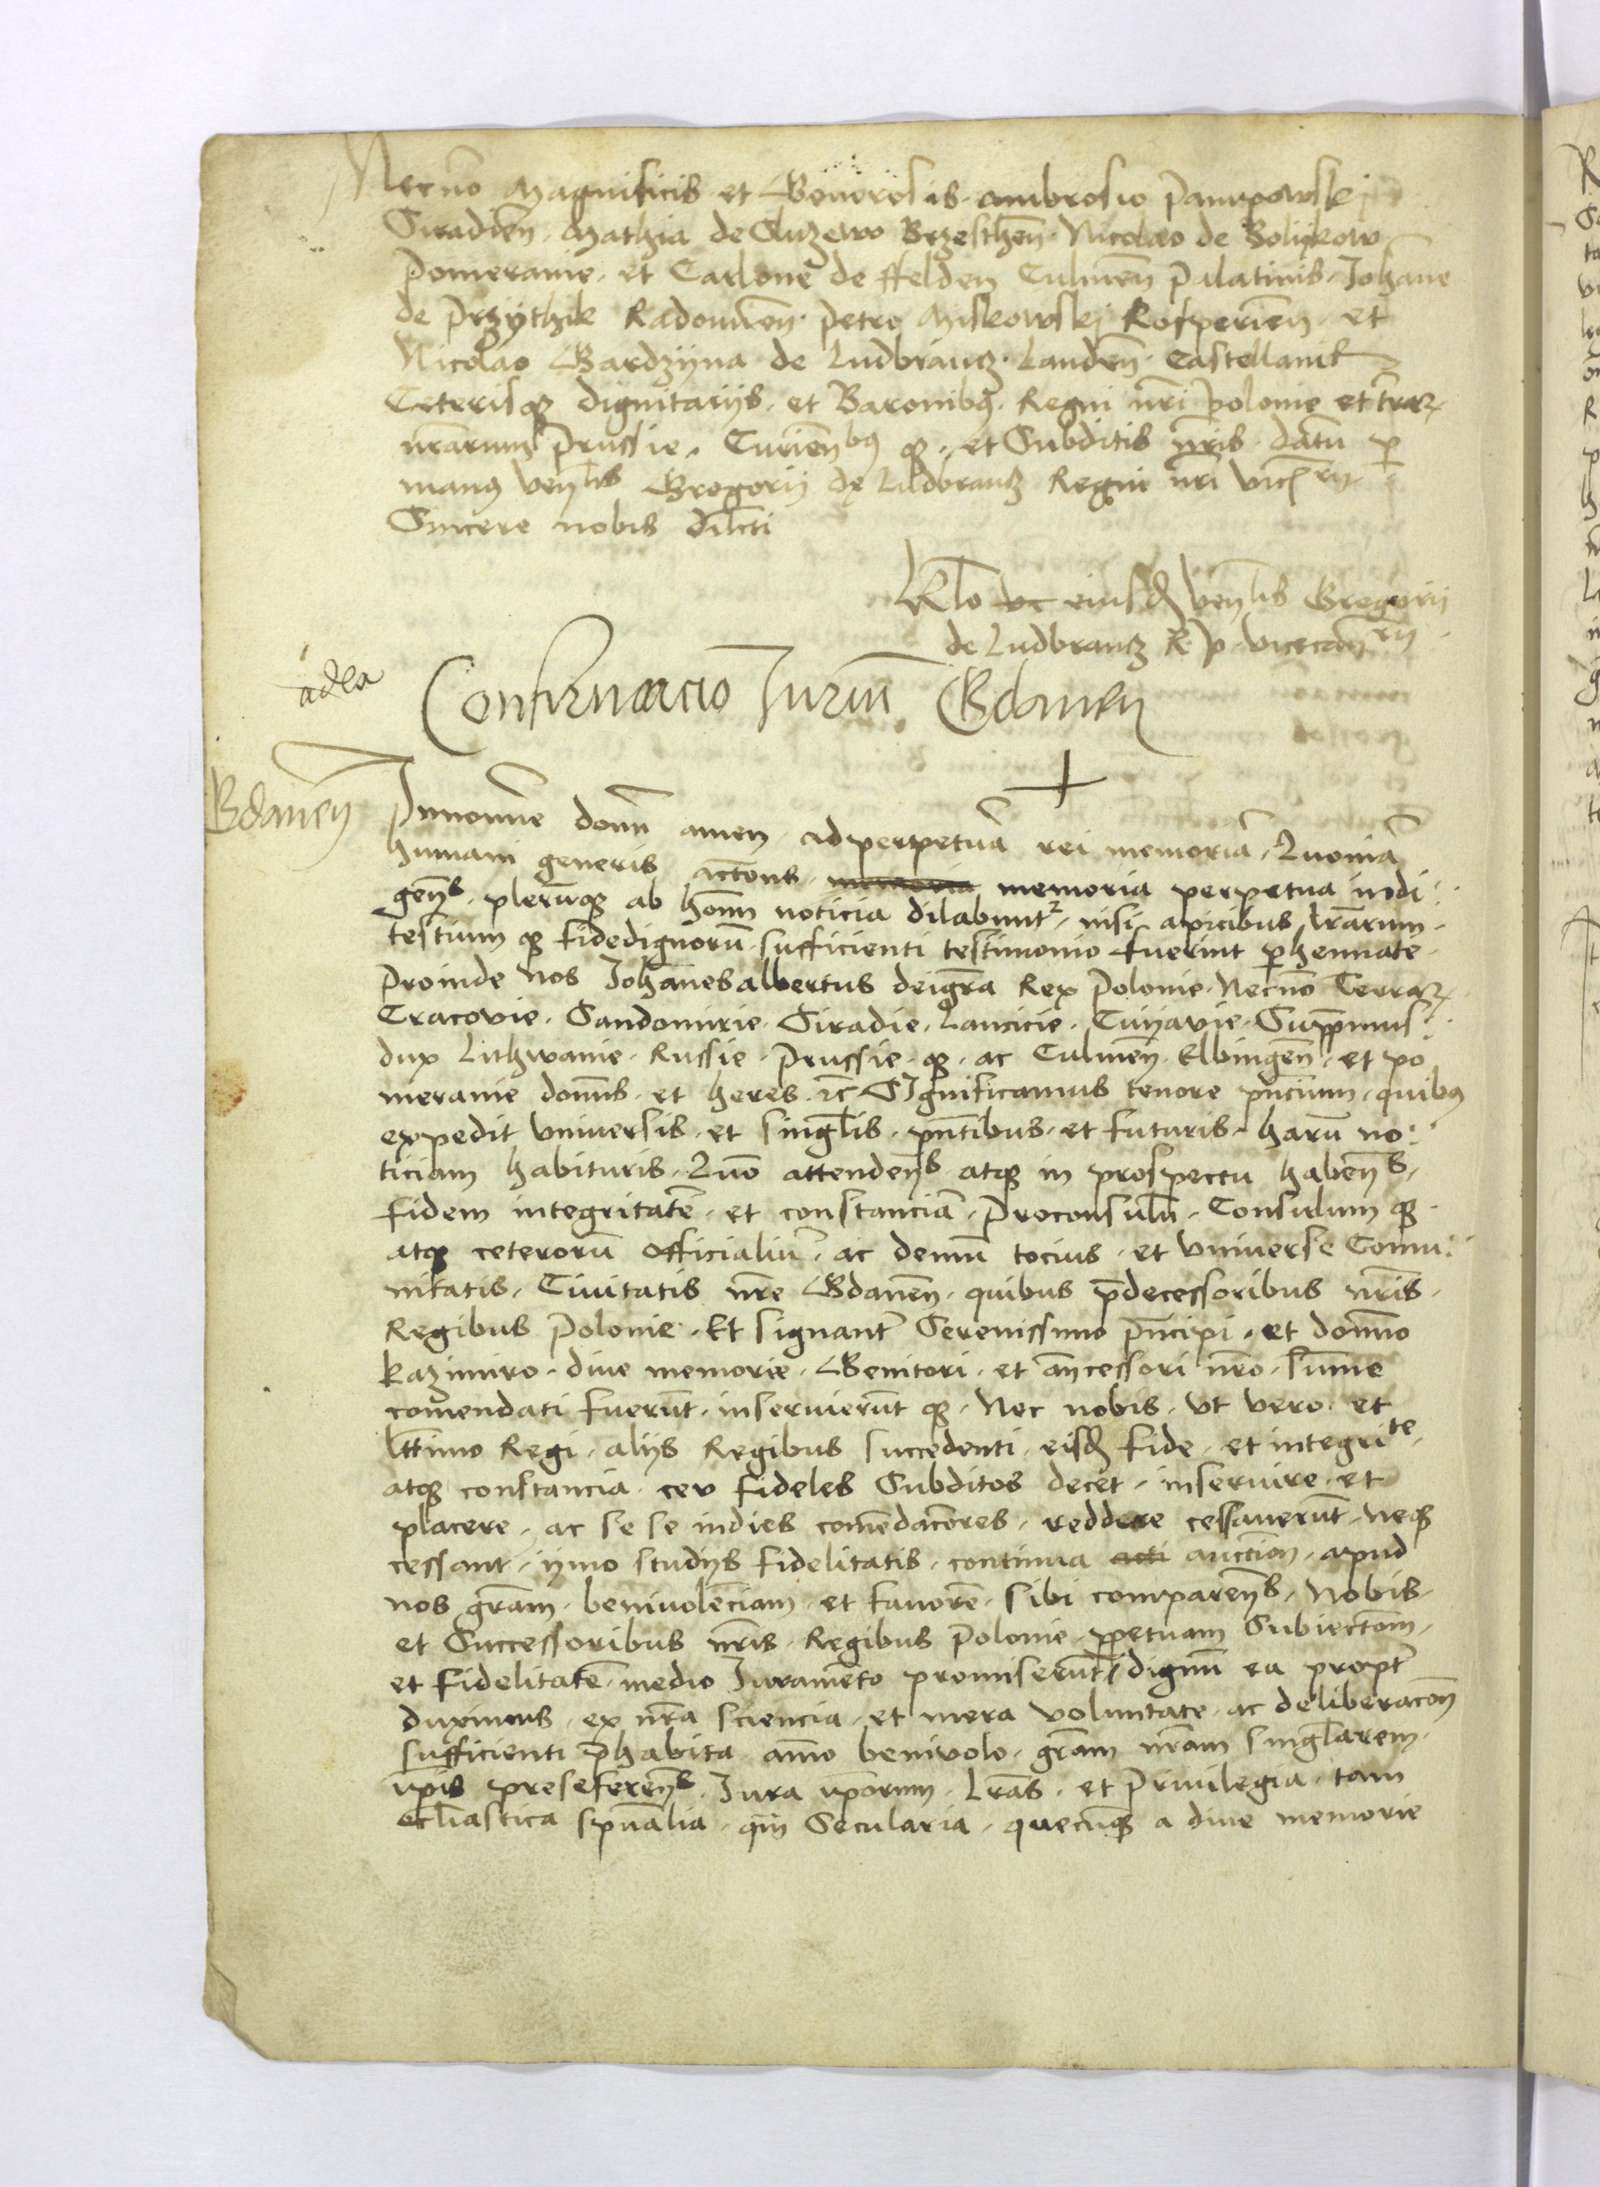 Necnõ Magnificis et Generosis Ambrosio Pampowskj
Siradieñ. Mathia de Sluzewo Brzestheñ. Nicolao de Bolijkow
Pomeranie. et Carlone de ffelden Culmeñ Palatinis. Johane
de Przÿthik Radomieñ. Petro Miskowskj Rosperieñ. et
Nicolao Gardzÿna de Ludbrancz. Landeñ. Castellanis
Ceterisqꝫ dignitariis. et Baronibꝫ. Regni nr̄i Polonie et tr̄arꝫ
nr̄arum Prussie. Curieñbꝫ qꝫ. et Subditis nr̄is. datu ꝑ
manꝫ ven̄lis Gregorii de Ludbrancz Regni nr̄i vicecrii
Sincere nobis dilcti
Rl̄o vc eiusd̄ ven̄lis Gregorii
de Ludbrancz R. P. vicecan̄rii
adea
Confirmacio Juriū Gdanen̄
Gdaneñ
In nomine domī amen. ad perpetuā rei memoriā. Quoniā
humani generis acc̄ones memoria memoria perpetua indi
gen̄s. plerūqꝫ ab hom̄ noticia dilabunt². nisi apicibus lr̄arum.
testium qꝫ fidedignorū sufficienti testimonio fuerint ꝑhennate.
Proinde nos Johānes albertus dei gr̄a Rex Polonie. Necnō Terrarꝫ
Cracovie. Sandomirie. Siradie. Lancicie. Cuijavie. Supp̄mus
dux Lithwanie. Russie. Prussie. qꝫ. ac Culmeñ. Elbingeñ. et po
meranie dom̄s. et heres. ꝛc̄ Significamus tenore pn̄cium. quibꝫ
expedit universis. et singl̄is. pn̄tibus. et futuris. harū no:
ticiam habituris. Quō attenden̄s atqꝫ in prospectu haben̄s.
fidem integritatē. et constanciā. Proconsulū. Consulum qꝫ
atqꝫ ceterorū officialiū. ac demū tocius. et vniuerse Comu:
nitatis. Ciuitatis nr̄e Gdaneñ. quibus p̄decessoribus nr̄is.
Regibus Polonie. Et signant̄ Serenissimo pn̄cipi. et domīno
Kazimiro. diue memorie. Genitori. et an̄cessori nr̄o. sūme
comendati fuerūt. inseruierūt qꝫ. Nec nobis. vt vero. et
l̄ttimo Regi. aliis Regibus succedenti. eisd̄ fide. et integrite.
atqꝫ constancia. ceu fideles Subditos decet. inseruire. et
placere. ac se se indies com̄endac̄ores. reddere cessauerūt. neqꝫ
cessant. ijmo studijs fidelitatis. continua acti aucc̄ion. apud
nos gr̄am. beniuolēciam. et fauorē. sibi comparen̄s. Nobis.
et Successoribus nr̄is. Regibus Polonie. ꝑpetuam Subiectōm.
et fidelitatē. medio Juramēto promiserūt. dignū ea propt̄
duximus. ex nr̄a sciencia. et mera voluntate. ac deliberac̄on
sufficienti p̄habita. an̄o beniuolo. gr̄am nr̄am singl̄arem.
ip̄is preseferen̄s. Jura ip̄orum. Lr̄as. et Priuilegia. tam
eccl̄iastica spūalia. q̄m Secularia. quecūqꝫ a diue memorie